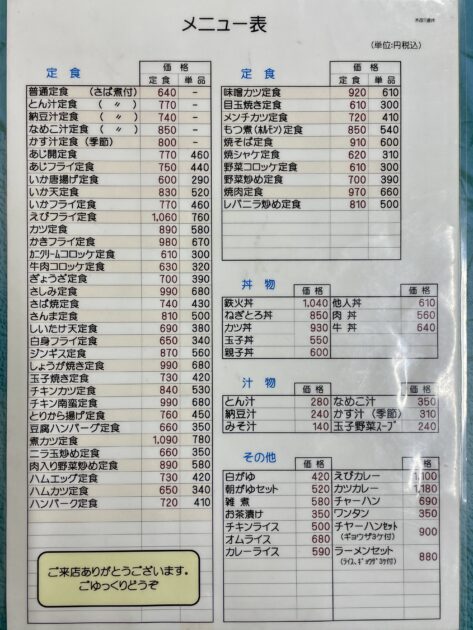 メニュー表
(単位:円税込)
定食
価格
定食 単品
普通定食 (さば煮付) 640 -
とん汁定食 ( 〃 ) 770 -
納豆汁定食 ( 〃 ) 740 -
なめこ汁定食 ( 〃 ) 850 -
かす汁定食 (季節) 800 -
あじ開定食 770 460
あじフライ定食 750 440
いか唐揚げ定食 600 290
いか天定食 830 520
いかフライ定食 770 460
えびフライ定食 1,060 760
カツ定食 890 580
かきフライ定食 980 670
カニクリームコロッケ定食 610 300
牛肉コロッケ定食 630 320
ぎょうざ定食 700 390
さしみ定食 990 680
さば焼定食 740 430
さんま定食 810 500
しいたけ天定食 690 380
白身フライ定食 650 340
ジンギス定食 870 560
しょうが焼き定食 990 680
玉子焼き定食 730 420
チキンカツ定食 840 530
チキン南蛮定食 990 680
とりから揚げ定食 760 450
豆腐ハンバーグ定食 660 350
煮カツ定食 1,090 780
ニラ玉炒め定食 660 350
肉入り野菜炒め定食 890 580
ハムエッグ定食 730 420
ハムカツ定食 650 340
ハンバーグ定食 720 410
ご来店ありがとうございます。
ごゆっくりどうぞ
定食
価格
定食 単品
味噌カツ定食 920 610
目玉焼き定食 610 300
メンチカツ定食 720 410
もつ煮(ホルモン)定食 850 540
焼そば定食 910 600
焼シャケ定食 620 310
野菜コロッケ定食 610 300
野菜炒め定食 700 390
焼肉定食 970 660
レバニラ炒め定食 810 500
丼物
価格 価格
鉄火丼 1,040 他人丼 610
ねぎとろ丼 850 肉丼 560
カツ丼 930 牛丼 640
玉子丼 550
親子丼 600
汁物
価格 価格
とん汁 280 なめこ汁 350
納豆汁 240 かす汁(季節) 310
みそ汁 140 玉子野菜スープ 240
その他
価格 価格
白がゆ 420 えびカレー 1,100
朝がゆセット 520 カツカレー 1,180
雑煮 580 チャーハン 690
お茶漬け 350 ワンタン 350
チキンライス 500 チャーハンセット
(ギョウザ3ケ付) 900
オムライス 680
カレーライス 590 ラーメンセット
(ライス、ギョウザ3ケ付) 880